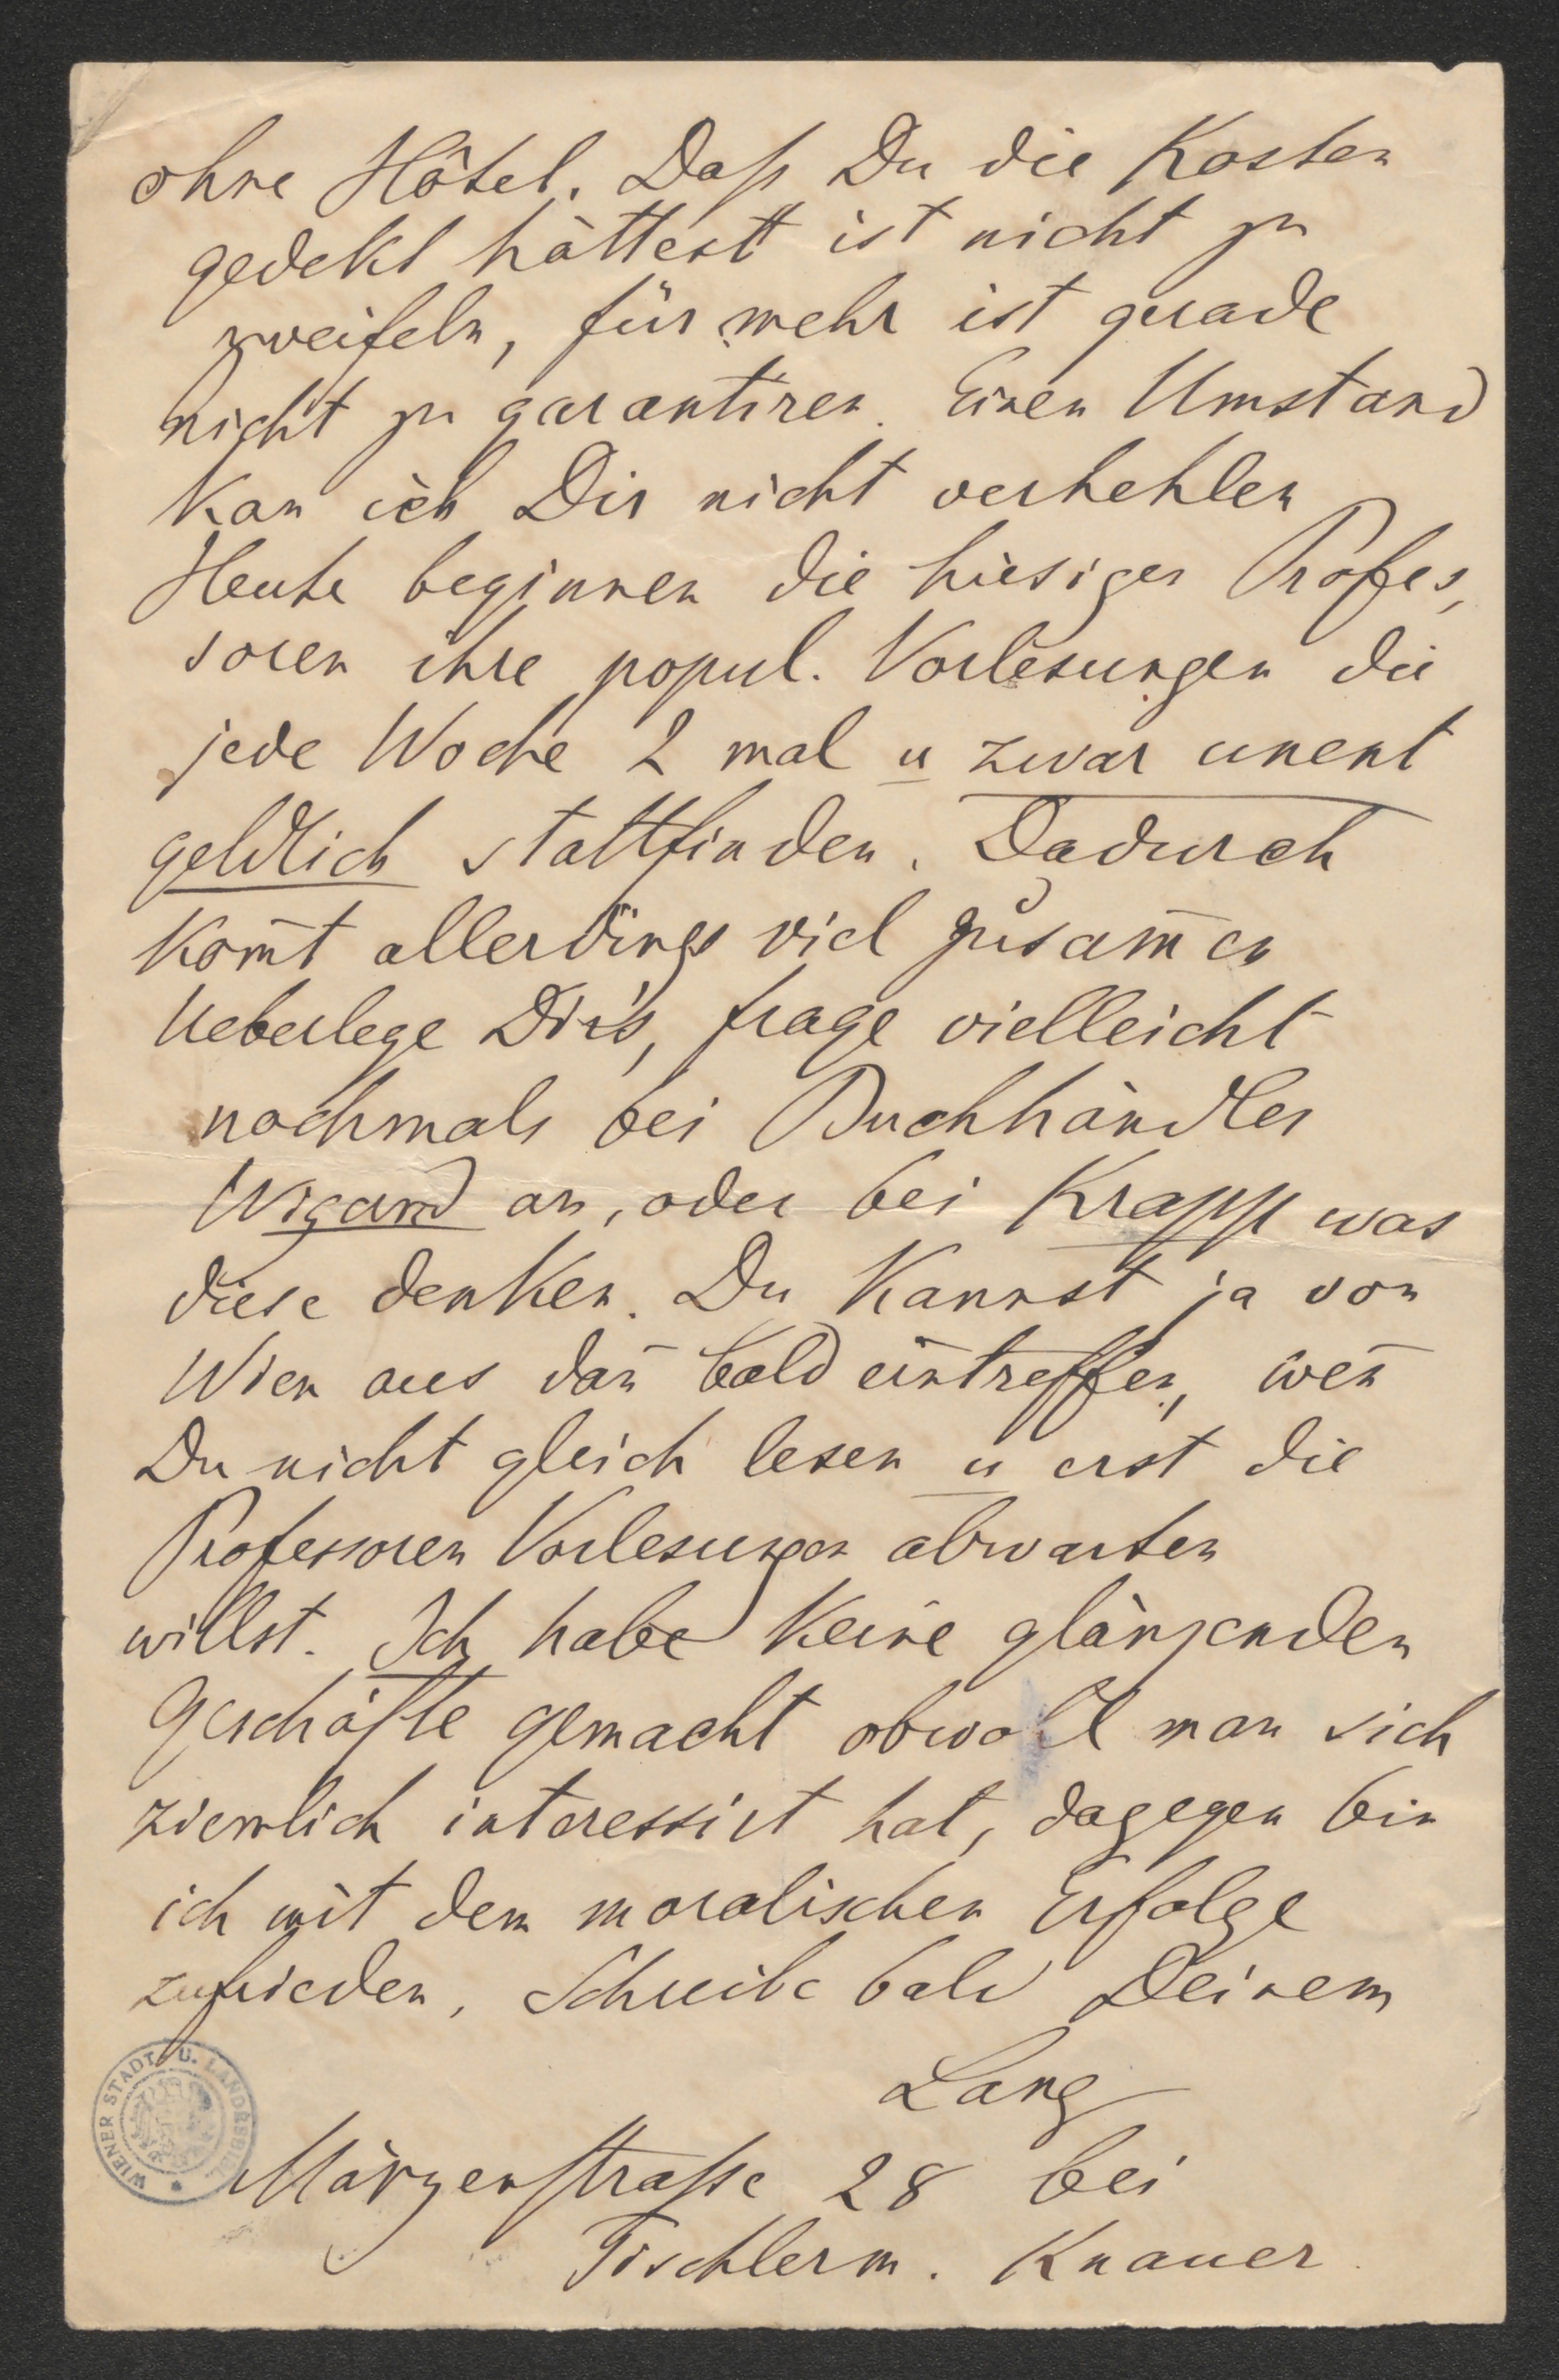 ohne Hôtel. Daß Du die Kosten
gedekt hättest ist nicht zu
zweifeln, für mehr ist gerade
nicht zu garantiren. Einen Umstand
kan̄ ich Dir nicht verhehlen
Heute beginnen die hiesigen Profes,
soren ihre popul. Vorlesungen die
jede Woche 2 mal u zwar unent
geldlich stattfinden. Dadurch
kom̄t allerdings viel zusam̄en
Ueberlege Dir's, frage vielleicht
nochmals bei Buchhändler
Wigand an, oder bei Krapp was
diese denken. Du kannst ja von
Wien aus dan̄ bald eintreffen, wen̄
Du nicht gleich lesen u erst die
Professoren Vorlesungen abwarten
willst. Ich habe keine glänzenden
Geschäfte gemacht obwohl man sich
ziemlich interessirt hat, dagegen bin
ich mit dem moralischen Erfolge
zufrieden. Schreibe bald Deinem
Lang
WIENER STADT- U. LANDESBIBL.
Märzenstraße 28 bei
Tischlerm. Knauer